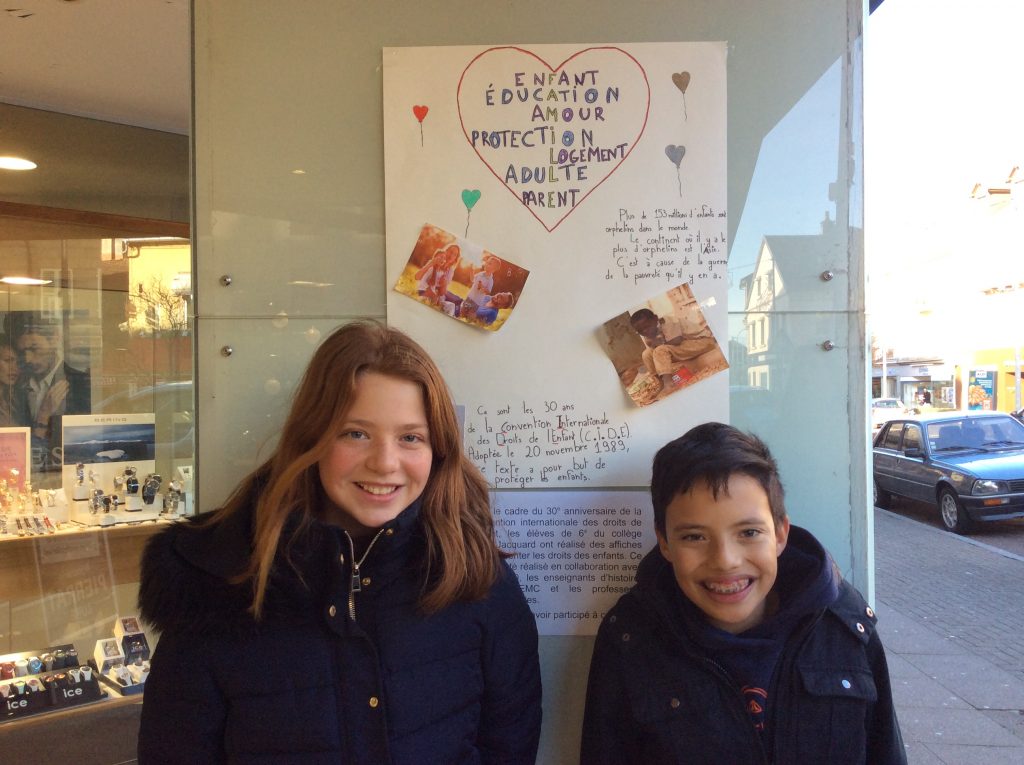 ENFANT
ÉDUCATION
AMOUR
PROTECTION
LOGEMENT
ADULTE
PARENT
Plus de 153 millions d'enfants sont
orphelins dans le monde.
Le continent où il y a le
plus d'orphelins est l'Asie.
C'est à cause de la guerre
de la pauvreté qu'il y en a.
Ca sont les 30 ans
de la Convention Internationale
des Droits de l'Enfant (C.I.D.E).
Adoptée le 20 novembre 1989,
ce texte a pour but de
protéger les enfants.
le cadre du 30° anniversaire de la
internationale des droits de
les élèves de 6° du collège
Jacquard ont réalisé des affiches
les droits des enfants. Ce
réalisé en collaboration avec
les enseignants d'histoire
EMC et les
participé à
BERING
ice
ice